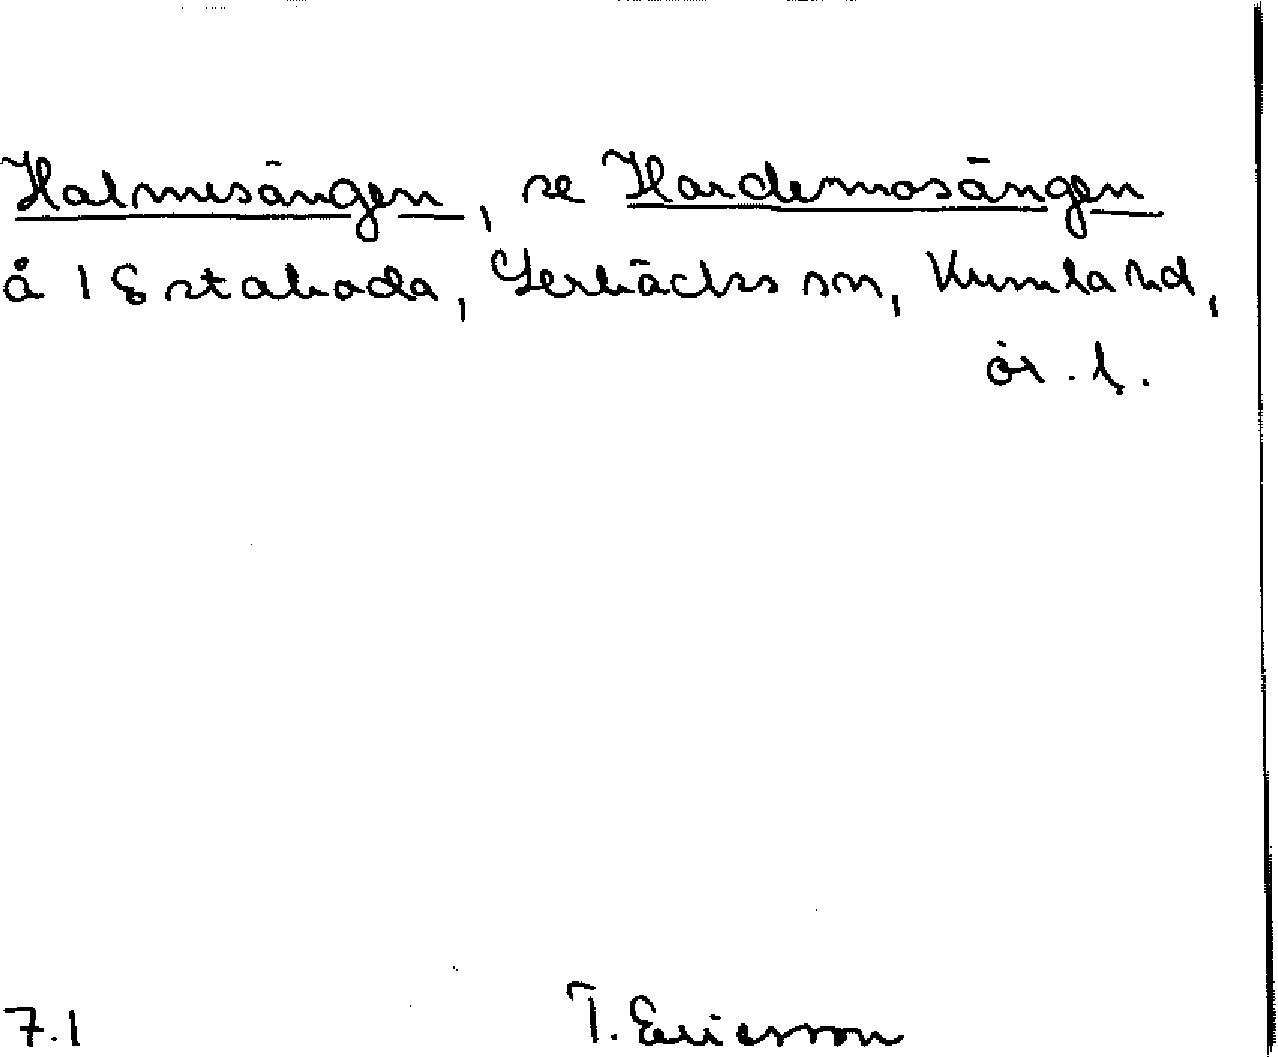 Halmesängen, se Hardemosängen
å 1 Estaboda, Lerbäcks sn, Kumla hd,
ör. l.
7.1 T. Ericsson